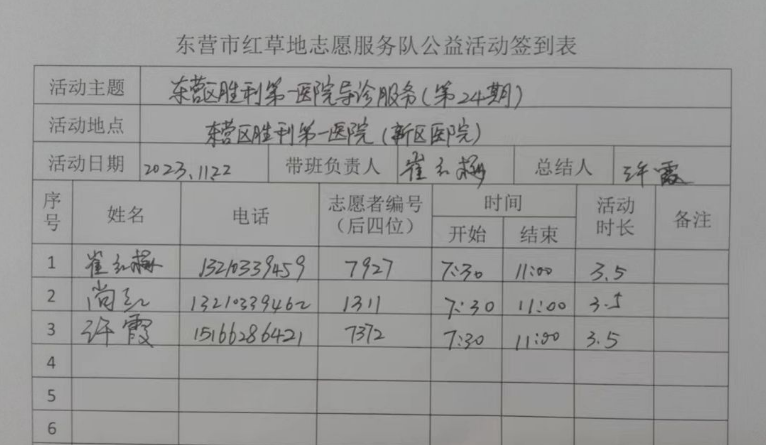 东营市红草地志愿服务队公益活动签到表
活动主题 东营区胜利第一医院导诊服务(第24期)
活动地点 东营区胜利第一医院(新区医院)
活动日期 2023.11.22 带班负责人 崔红梅 总结人 许霞
序号 姓名 电话 志愿者编号(后四位) 时间 开始 结束 活动时长 备注
1 崔红梅 13210339459 7927 7:30 11:00 3.5
2 尚红 13210339462 1311 7:30 11:00 3.5
3 许霞 15166286421 7372 7:30 11:00 3.5
4
5
6